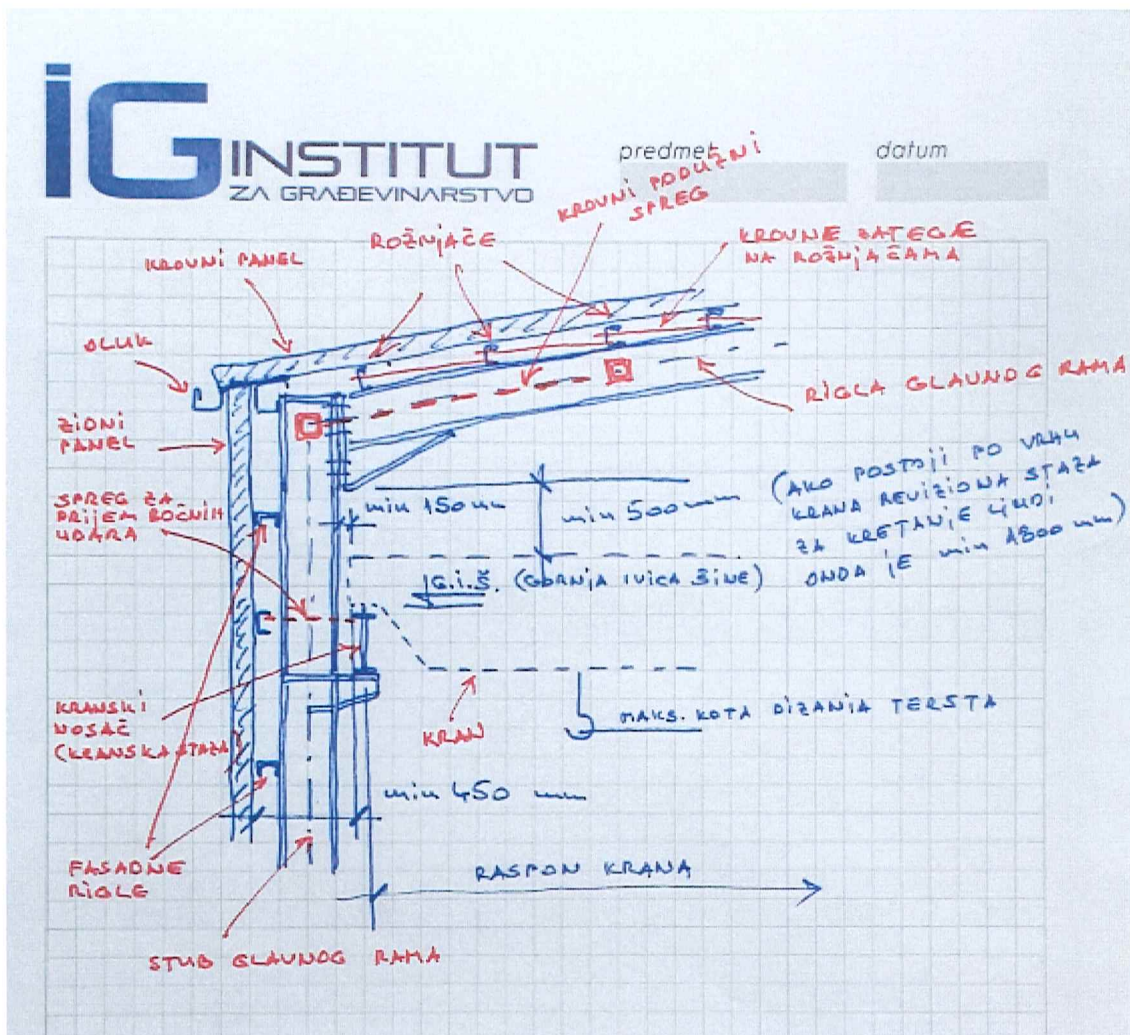 iG INSTITUT
ZA GRAĐEVINARSTVO
predmet
datum
KROVNI PODUŽNI
SPREG
ROŽNJAČE
KROVNE ZATEGE
NA ROŽNJAČAMA
KROVNI PANEL
OLUK
RIGLA GLAVNOG RAMA
ZIDNI
PANEL
SPREG ZA
PRIJEM BOČNIH
UDARA
min 150 mm
min 500 mm
(AKO POSTOJI PO VRHU
KRANA REVIZIONA STAZA
ZA KRETANJE LJUDI
ONDA JE min 1800 mm)
G.I.Š. (GORNJA IVICA ŠINE)
KRANSKI
NOSAČ
(KRANSKA STAZA)
KRAN
MAKS. KOTA DIZANJA TERSTA
min 450 mm
FASADNE
RIGLE
RASPON KRANA
STUB GLAVNOG RAMA